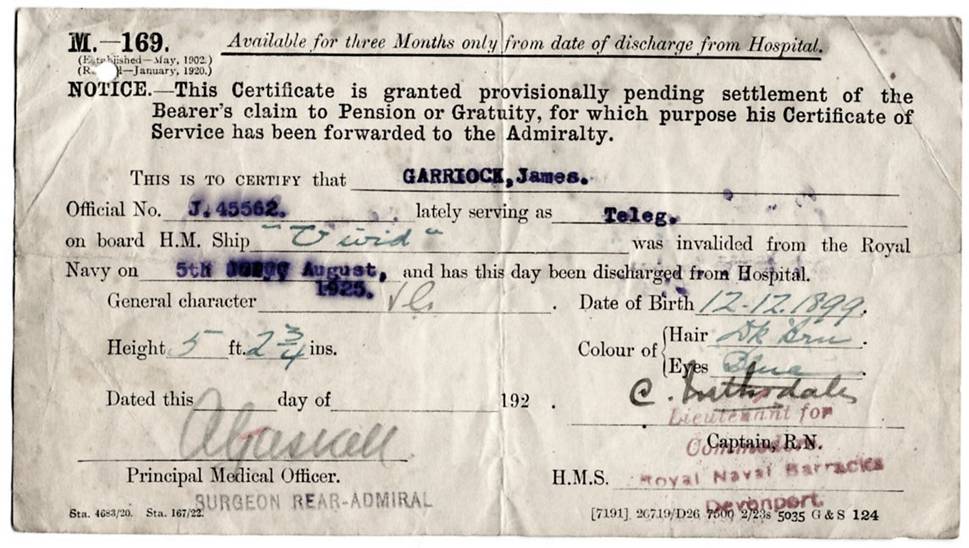 M.—169. Available for three Months only from date of discharge from Hospital.
(Established—May, 1902.)
(R—January, 1920.)
NOTICE.—This Certificate is granted provisionally pending settlement of the
Bearer's claim to Pension or Gratuity, for which purpose his Certificate of
Service has been forwarded to the Admiralty.
THIS IS TO CERTIFY that GARRIOCK, James.
Official No. J. 45562. lately serving as Teleg.
on board H.M. Ship "Vivid" was invalided from the Royal
Navy on 5th August, and has this day been discharged from Hospital.
1925.
General character VG. Date of Birth 12-12.1899.
Height 5 ft. 2 3/4 ins. Colour of {Hair Dk Brn.
{Eyes Blue.
Dated this day of 192 .
C.
Lieutenant for
Captain, R.N.
Commodore.
Principal Medical Officer. H.M.S. Royal Naval Barracks
SURGEON REAR-ADMIRAL Devonport.
Sta. 4683/20. Sta. 167/22. [7191] 26719/D26 7500 2/23s 5035 G & S 124